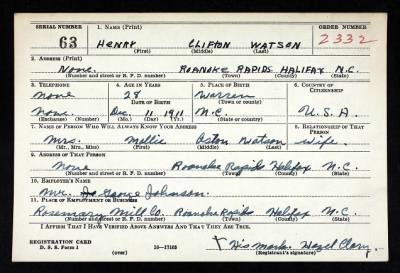 SERIAL NUMBER 1. NAME (Print) ORDER NUMBER
63 HENRY CLIFTON WATSON 2332
(First) (Middle) (Last)
2. ADDRESS (Print)
None. ROANOKE RAPIDS HALIFAX N.C.
(Number and street or R. F. D. number) (Town) (County) (State)
3. TELEPHONE 4. AGE IN YEARS 5. PLACE OF BIRTH 6. COUNTRY OF CITIZENSHIP
None 28 Warren
DATE OF BIRTH (Town or county)
None. Dec. 11 1911 N.C. U.S.A.
(Exchange) (Number) (Mo.) (Day) (Yr.) (State or country)
7. NAME OF PERSON WHO WILL ALWAYS KNOW YOUR ADDRESS 8. RELATIONSHIP OF THAT PERSON
Mrs. Mollie Watson wife.
(Mr., Mrs., Miss) (First) (Middle) (Last)
9. ADDRESS OF THAT PERSON
None Roanoke Rapids Halifax N.C.
(Number and street or R. F. D. number) (Town) (County) (State)
10. EMPLOYER'S NAME
Mr. George Johnson.
11. PLACE OF EMPLOYMENT OR BUSINESS
Rosemary Mill Co. Roanoke Rapids Halifax N.C.
(Number and street or R. F. D. number) (Town) (County) (State)
I AFFIRM THAT I HAVE VERIFIED ABOVE ANSWERS AND THAT THEY ARE TRUE.
REGISTRATION CARD
D. S. S. Form 1 16-17105 X His mark. Hazel Clary.
(over) (Registrant's signature)